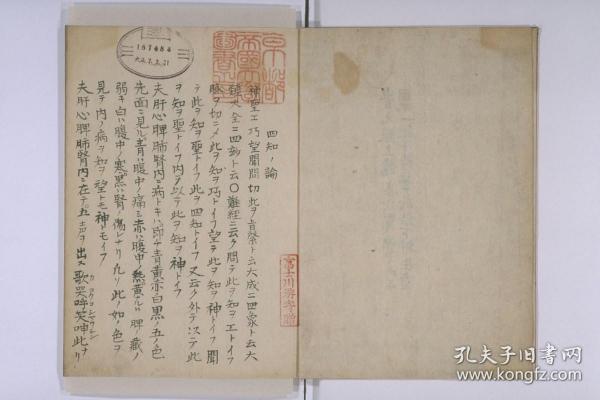 167484
四知ノ論
神聖工巧望聞問切此ヲ
大成ニ四象ト云大
全ニ四知ト云〇難經ニ云ク問テ此ヲ知ヲ工トイフ
脉ヲ切ニメ此ヲ知ヲ巧トイフ望テ此ヲ知ヲ神トイフ聞
テ此ヲ知ヲ聖トイフ此ヲ四知トイフ又云ク外ヲ以テ此
ヲ知ヲ聖トイフ内ヲ以テ此ヲ知ヲ神トイフ
夫肝心脾肺腎内ニ病トキハ即チ青黄赤白黒ノ五ノ色
先面ニ見ル青ハ腹中ノ痛ミ赤ハ腹中ノ熱黄ナルハ脾ノ蔵ノ
弱キ白ハ腹中ノ寒黒ハ腎ノ傷レナリ凡ソ此ノ如ノ色ヲ
見テ内ノ病ヲ知ヲ望トモ神トモイフ
夫肝心脾肺腎内ニ在テ五音ヲ出ス歌哭呼笑呻此ナリ
富士川游寄贈
孔夫子旧书网
www.kongfz.com